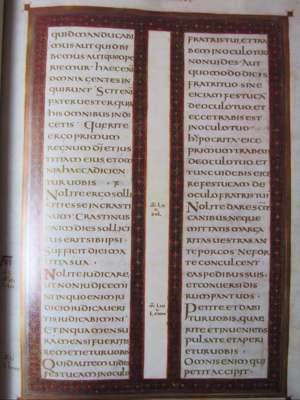 QUIDMANDUCABI
MUSAUTQUIDBI
BEMUSAUTQUOOPE
RIEMURHAECENI
OMNIAGENTESIN
QUIRUNTSCITENI
PATERUESTERQUIA
HISOMNIBUSINDI
GETISQUERITE
ERGOPRIMUM
REGNUMDIETIUS
TITIAMEIUSETOM
NIAHAECADICIEN
TURUOBIS
NOLITEERGOSOLLI
CITIESSEINCRASTI
NUMCRASTINUS
ENIMDIESSOLLICI
TUSERITSIBIIPSI
SUFFICITDIEIMA
LITIASUA
NOLITEIUDICARE
UTNONIUDICEMI
NIINQUOENIMIU
DICIOIUDICAUERI
TISIUDICABIMINI
ETINQUAMENSU
RAMENSIFUERITIS
REMETIETURUOBIS
QUIDAUTEMUIDES
FESTUCAMINOCULO
FRATRISTUIETTRA
BEMINOCULOTUO
NONUIDESAUT
QUOMODODICIS
FRATRITUOSINE
EICIAMFESTUCA
DEOCULOTUOET
ECCETRABISEST
INOCULOTUO
HYPOCRITAEICE
PRIMUMTRABEM
DEOCULOTUOET
TUNCUIDEBISEICE
REFESTUCAMDE
OCULOFRATRISTUI
NOLITEDARESCM
CANIBUSNEQUE
MITTATISMARGA
RITASUESTRASAN
TEPORCOSNEFOR
TECONCULCENT
EASPEDIBUSSUIS
ETCONUERSIDIS
RUMPANTUOS
PETITEETDABI
TURUOBISQUAE
RITEETINUENIETIS
PULSATEETAPERI
ETURUOBIS
OMNISENIMQUI
PETITACCIPIT